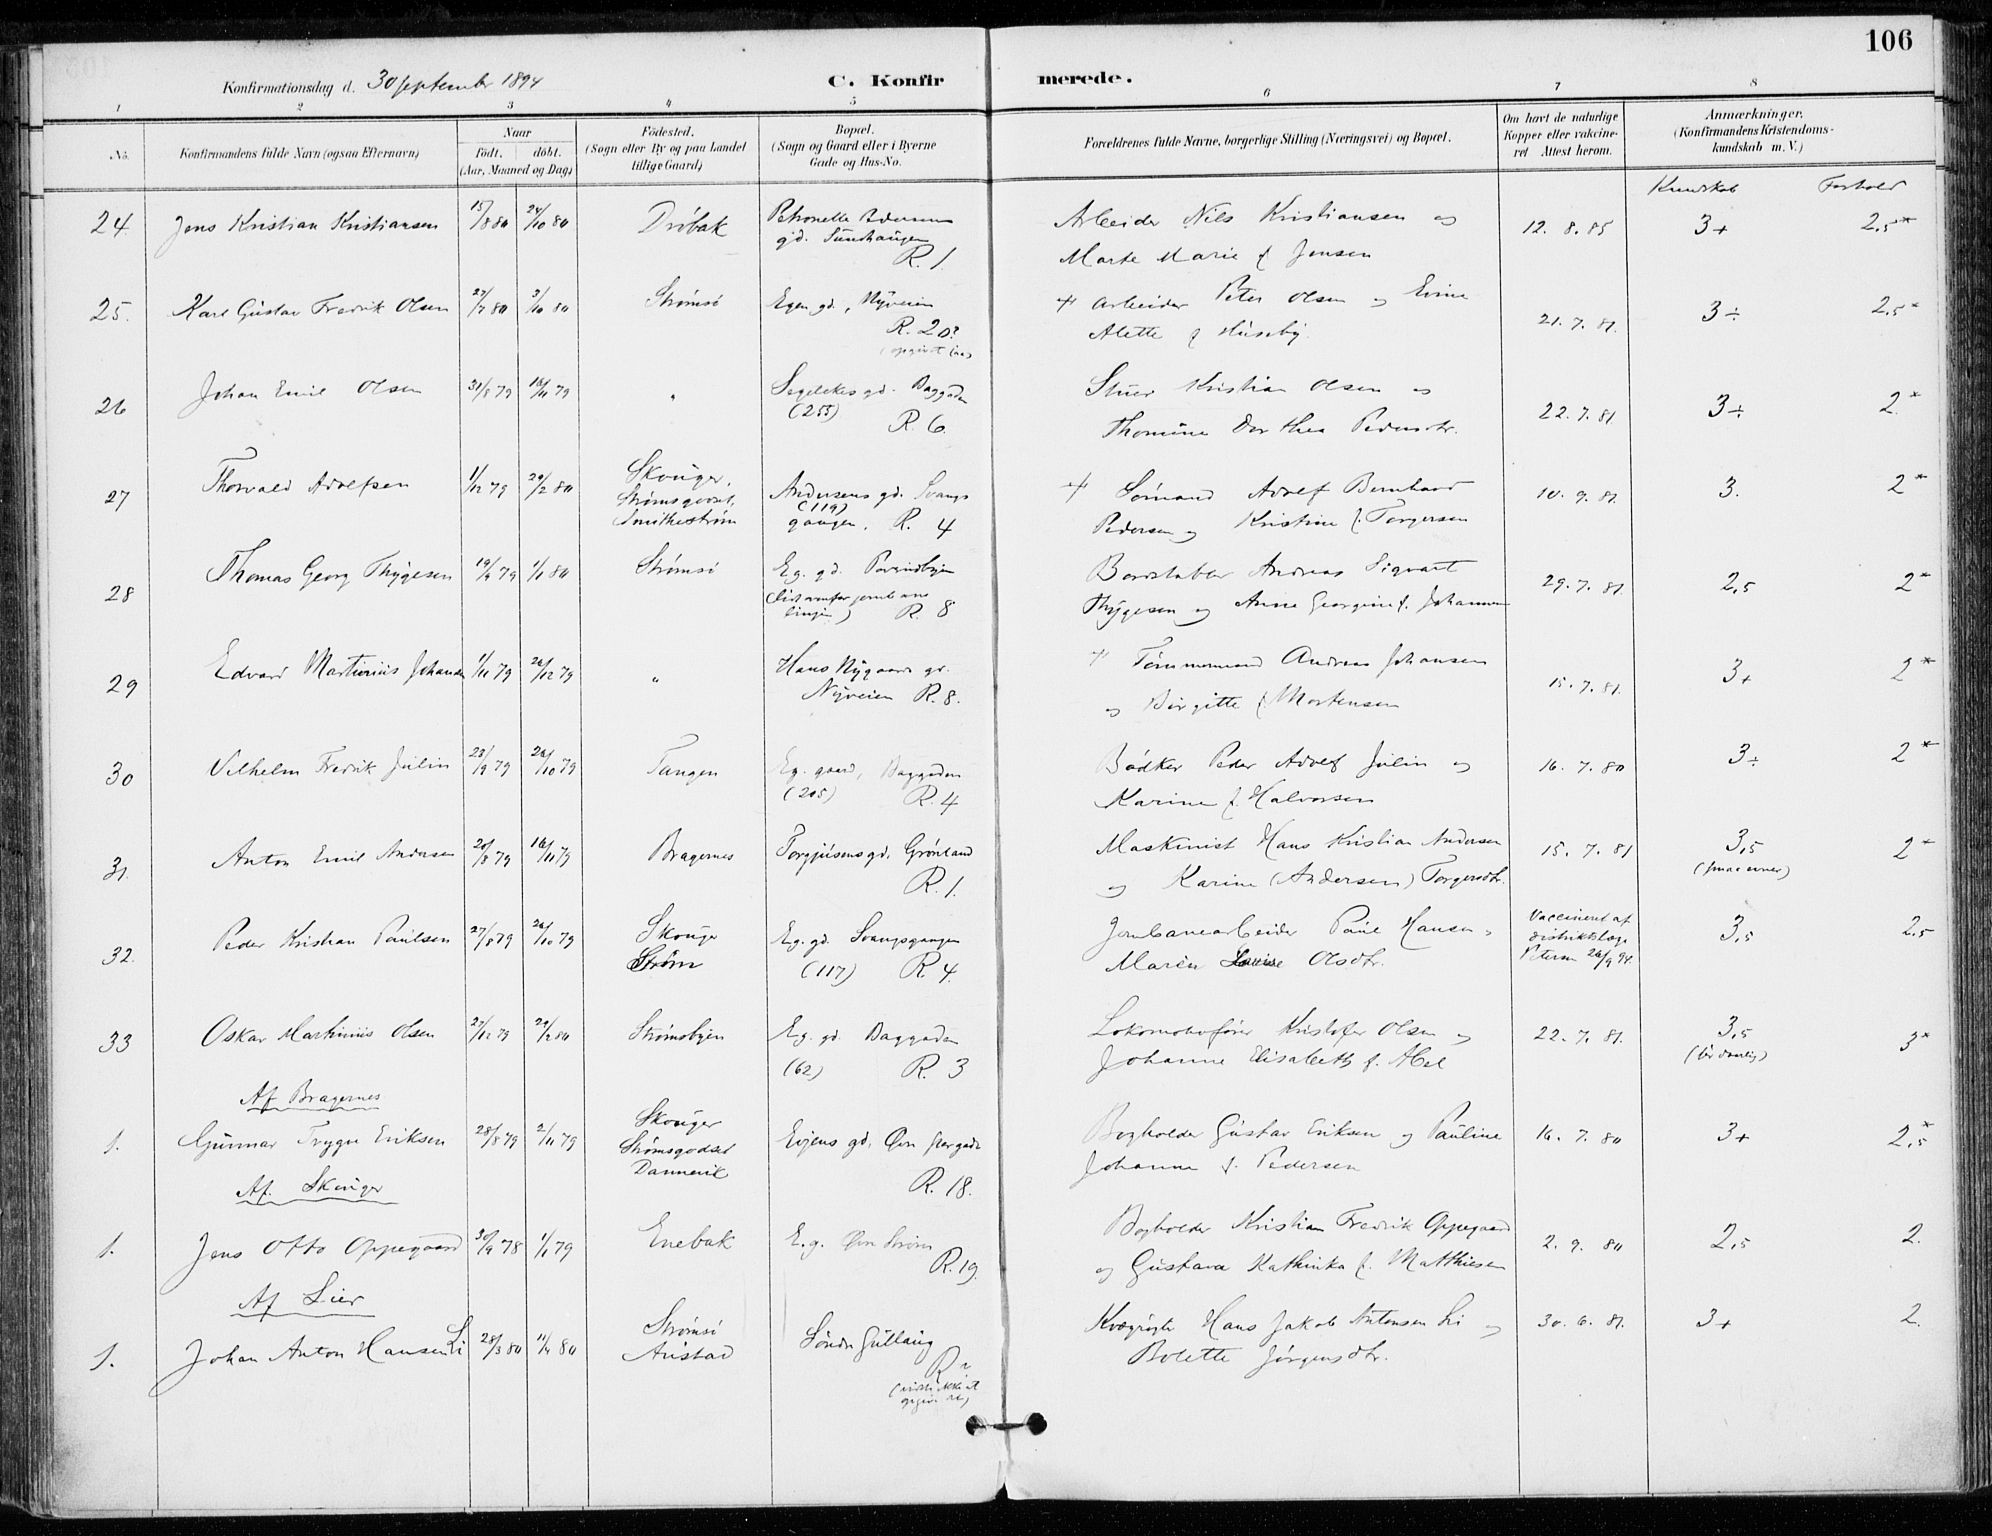 106
Konfirmationsdag d. 30 september 1894
C. Konfirmerede.
1 2 3 4 5 6 7 8
No.
Konfirmandens fulde Navn (ogsaa Efternavn)
Naar
født. døbt.
(Aar, Maaned og Dag)
Fødested.
(Sogn eller By og paa Landet
tillige Gaard)
Bopæl.
(Sogn og Gaard eller i Byerne
Gade og Hus-No.
Forældrenes fulde Navne, borgerlige Stilling (Næringsvei) og Bopæl.
Om havt de naturlige
Kopper eller vakcine-
ret Attest herom.
Anmærkninger.
(Konfirmandens Kristendoms-
kundskab m. V.)
Kundskab Forhold
24. Jens Kristian Kristiansen 15/8 80 24/10 80 Drøbak Petronelle Pedersens
gd. Sundhaugen
R. 1.
Arbeider Nils Kristiansen og
Marte Marie f. Jensen
12. 8. 85 3+ 2,5*
25. Karl Gustav Fredrik Olsen 27/7 80 3/10 80 Strømsø Egen gd., Nyveien
R. 20?
† Arbeider Peter Olsen og
Alette f. Huseby.
21. 7. 81. 3÷ 2,5*
26 Johan Emil Olsen 31/8 79 16/11 79 " gd. Baggaden
(255) R. 6.
Stuer Kristian Olsen og
Thomine Dorthea Pedersdtr.
22. 7. 81 3÷ 2.*
27 Thorvald Adolfsen 1/12 79 29/2 80 Skouger,
Strømsgodset,
Smithestrøm
Andersens gd. Svangs
(119)
gangen. R. 4
† Sømand Adolf Bernhard
Pedersen og Kristine f. Torgersen
10. 9. 81. 3. 2*
28 Thomas Georg Thygesen 19/9 79 1/1 80 Strømsø Eg. gd.
R. 8
Bordstabler Andreas Sigvart
Thygesen og Anne Georgine f. Johannesen
29. 7. 81. 2,5 2*
29 Edvard Martinius Johansen 1/11 79 26/12 79 " Hans Nygaards gd.
Nyveien R. 8.
† Tømmermand Andreas Johansen
og Birgitte f. Mortensen
15. 7. 81. 3+ 2*
30 Vilhelm Fredrik Julin 23/9 79 26/10 79 Tangen Eg. gaard, Baggaden
(205) R. 4
Bødker Peder Adolf Julin og
Karine f. Halvorsen
16. 7. 80 3÷ 2*
31. Anton Emil Andersen 20/8 79 16/11 79 Bragernes Torgjusens gd. Grønland
R. 1.
Maskinist Hans Kristian Andersen
og Karine (Andersen) Torgersdtr.
15. 7. 81 3,5
(smaa evner) 2*
32. Peder Kristian Paulsen 27/8 79 26/10 79 Skouger
Strøm
Eg. gd. Svangsgangen
(117) R. 4.
Jernbanearbeider Paul Hansen og
Maren Olsdtr.
Vaccineret af
distriktslæge
Petersen 26/9 94. 3,5 2,5
33 Oskar Martinius Olsen 27/12 79 29/2 80 Strømsbyen Eg. gd. Baggaden
(62) R. 3
Lokomotivfører Kristofer Olsen og
Johanne Elisabeth f. Abel
22. 7. 81. 3,5 3*
Af Bragernes
1. Gunnar Trygve Eriksen 28/8 79 2/11 79 Skouger
Strømsgodset
Dannevik
Evjens gd. Øvre Storgade
R. 18.
Bogholder Gustav Eriksen og Pauline
Johanne f. Pedersen
16. 7. 80 3+ 2,5*
Af. Skouger
1. Jens Otto Oppegaard 30/9 78 1/1 79 Enebak E. g. Øvre Strøm
R. 19.
Bogholder Kristian Fredrik Oppegaard
og Gustava Kathinka f. Matthiesen
2. 9. 80 2,5 2.
Af Lier
1. Johan Anton Hansen Li 28/3 80 11/4 80 Strømsø
Austad
Søndre Gullaug
R?
Kvægrøgter Hans Jakob Antonsen Li og
Bolette Jørgensdtr.
30. 6. 81. 3+ 2.